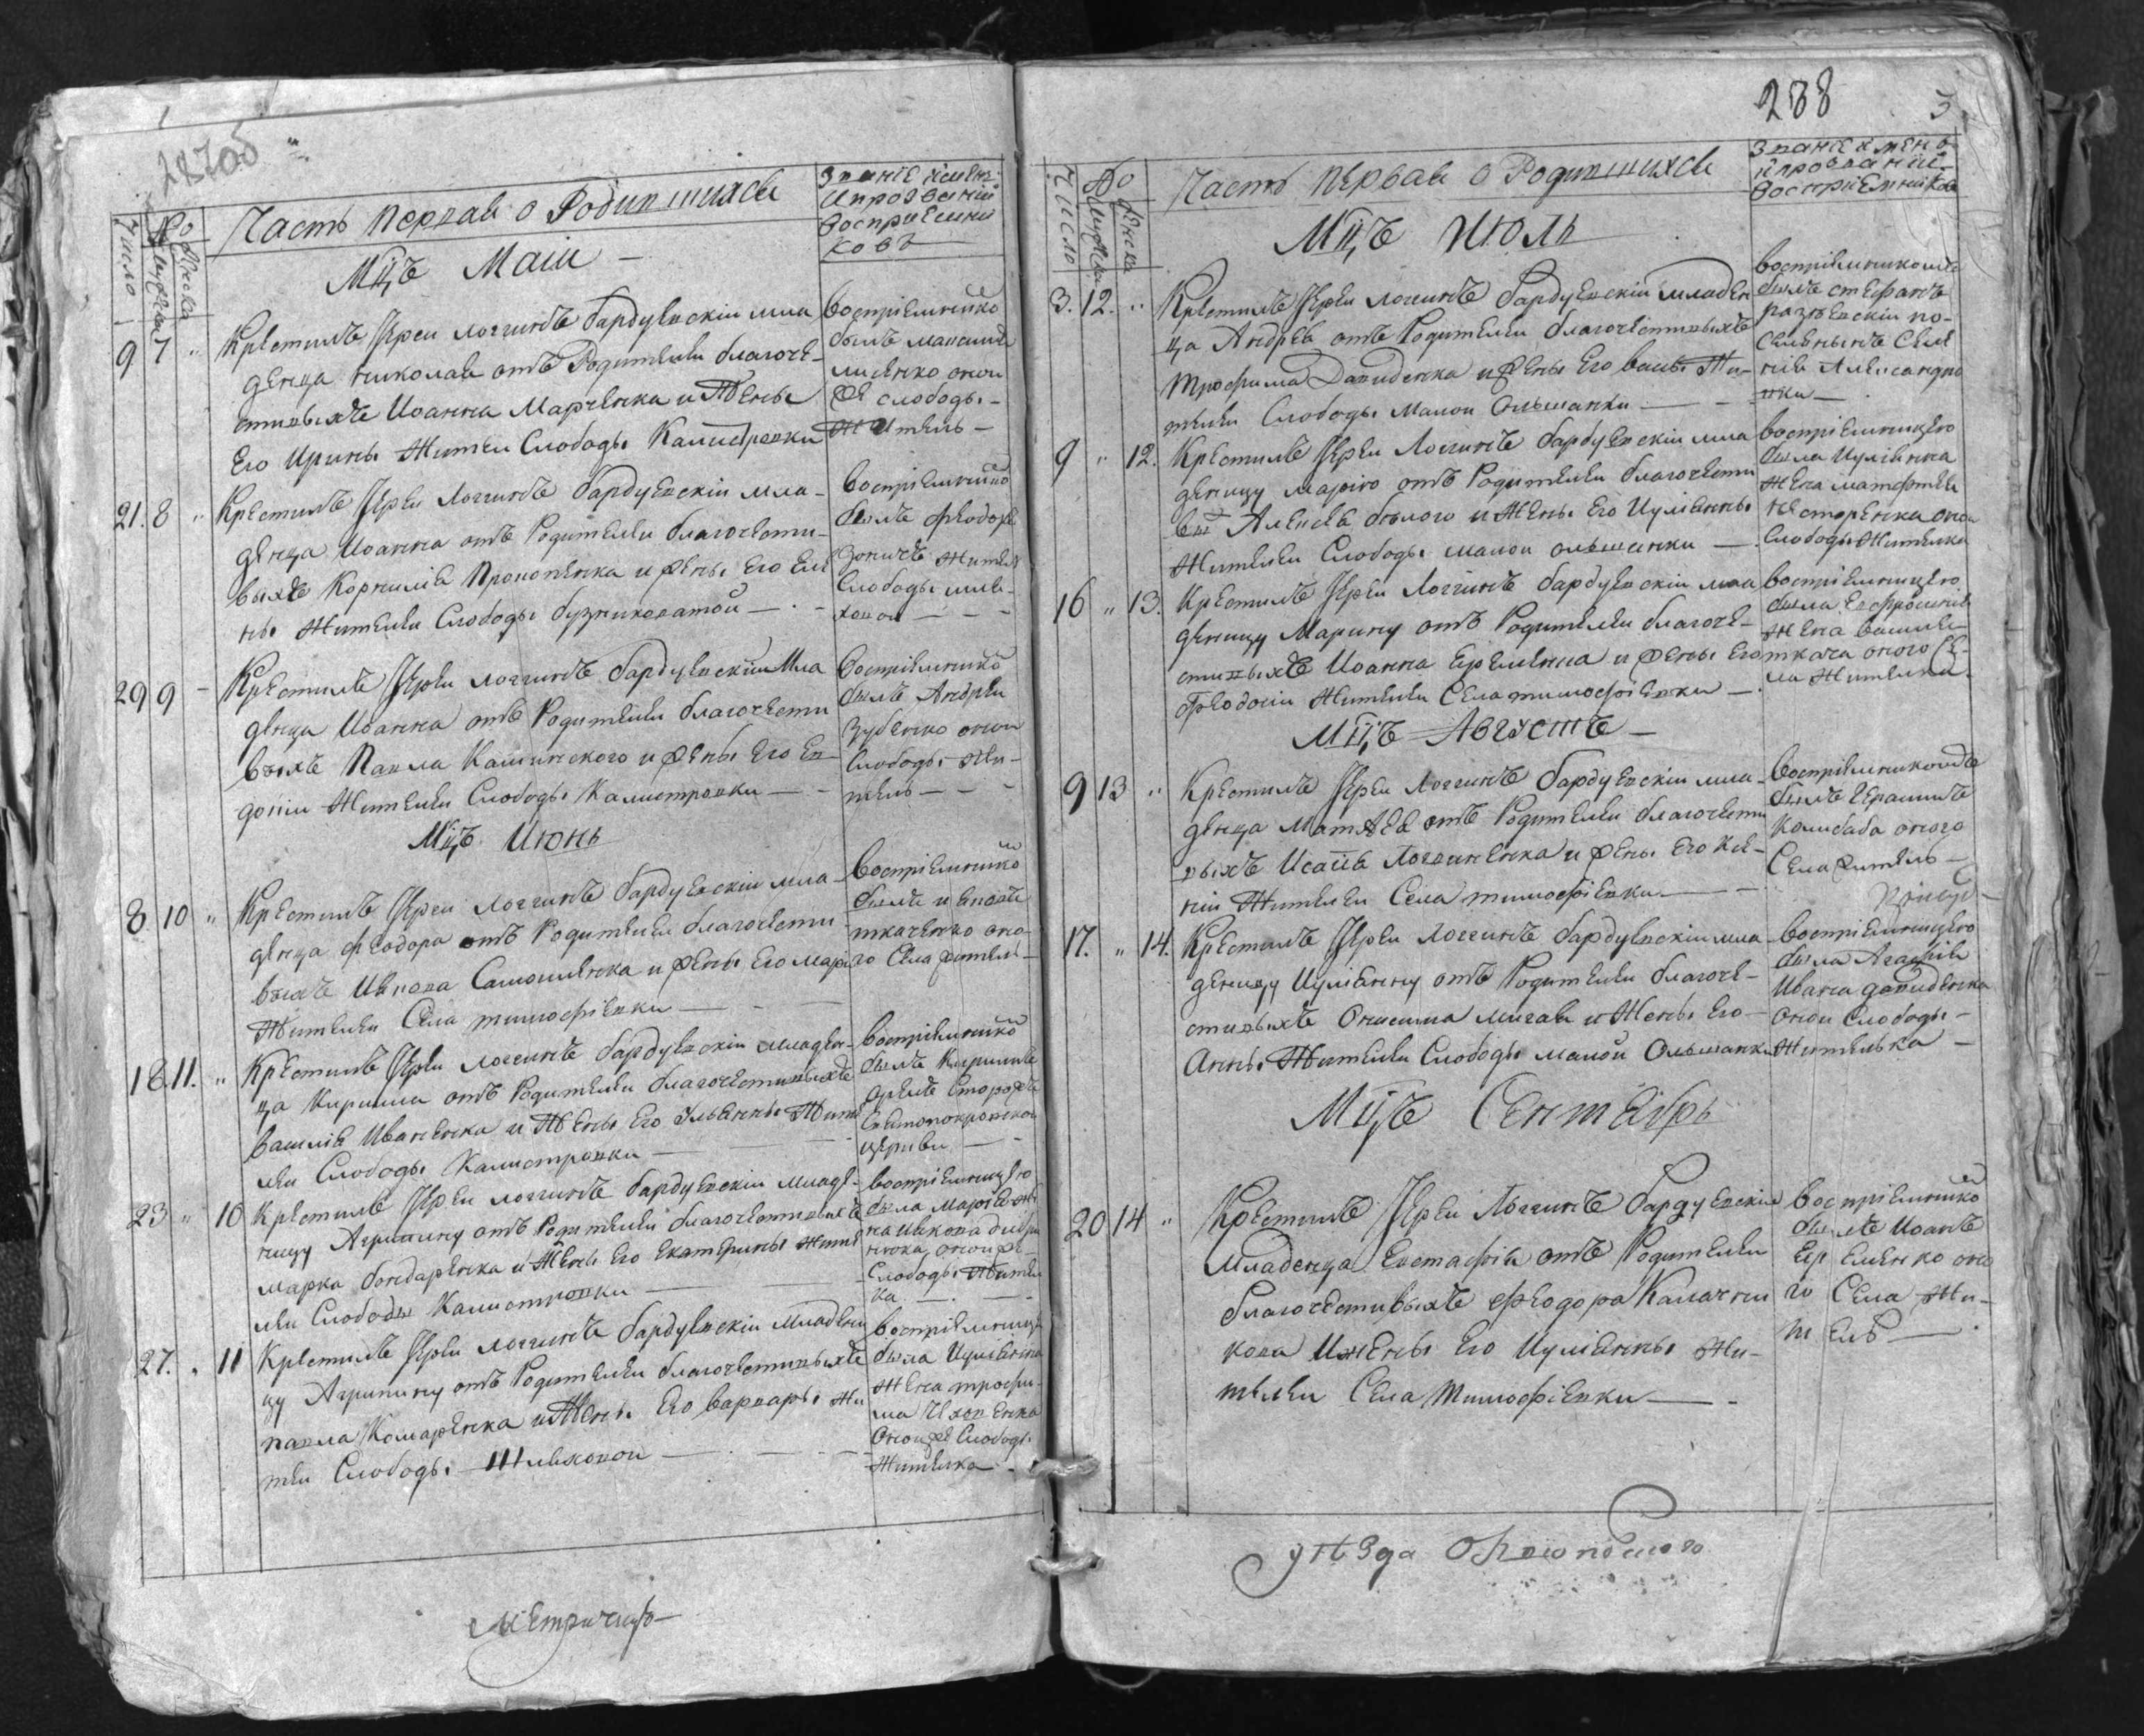 287об
Число
No
Мужска
Женска
Часть первая о Родившихся
Званіе имен
И прозваній
Восприемни
ковъ
Мцъ Маій
9 7 " Крестилъ Іерей Логгинъ бардуевскій мла
денца николая отъ Родителей благоче-
стивыхъ Иоанна Марченка и Жены
Его Ирины Жителей Слободы Калистровки
Восприемнико
былъ
оной
же слободы
житель
21. 8 " Крестилъ Іерей Логгинъ бардуевскій мла-
денца Иоанна отъ Родителей благочести-
выхъ Корнилія Прокопенка и жены Его Еле
ны Жителей Слободы бузниковатой
Восприемнико
былъ феодоръ
Житель
Слободы шля-
ховой
29 9 - Крестилъ Іерей Логгинъ бардуевскій Мла
денца Иоанна отъ Родителей благочести
выхъ Павла Кашинского и жены Его Ев
докіи Жителей Слободы Калистровки
Восприемнико
былъ Андрей
Зубенко оной
Слободы Жи-
тель
Мцъ Июнь
8 10 " Крестилъ Іерей Логгинъ бардуевскій мла-
денца феодора отъ Родителей благочести
выхъ Иякова Самойленка и жены Его Мари
Жителей Села тимофіевки
Восприемнико
былъ иаковъ
ткаченко оно
го Села житель
18. 11. " Крестилъ Іерей Логгинъ бардуевскій младен-
ца Кирилла отъ Родителей благочестивыхъ
василія Иваненка и Жены Его Ульянны Жите
лей Слободы Калистровки
Восприемнико
былъ Кириллъ
орелъ Сторожъ
Святопокровской
церкви
23 " 10 Крестилъ Іерей логгинъ бардуевскій младе-
ницу Агрипину отъ Родителей благочестивыхъ
марка бондаренка и Жены Его Екатерины Жите
лей Слободы Калистровки
восприемницею
была Марія же
на Иякова
оной же
Слободы Житель
ка
27. " 11 Крестилъ Іерей логгинъ бардуевскій младени
цу Агрипину отъ Родителей благочестивыхъ
павла Комаренка и Жены Его варвары Жи
телей Слободы Шляховой
восприемнице
была Иуліянна
Жена трофи
ма
Оной же Слободы
Жителька
Метричную
288
3
Число
No
Мужска
Женска
Часть первая о Родившихся
Званіе имено
и прозваній
Восприемниковъ
Мцъ Июль
3. 12. " Крестилъ Іерей логгинъ бардуевскій младен
ца Андрея отъ Родителей благочестивыхъ
трофима Давиденка и жены Его Жи-
телей Слободы Малой Ольшанки
восприемникомъ
былъ стефанъ
разъевскій по-
селянинъ Селе
нія Александро
вки
9 " 12. Крестилъ Іерей Логгинъ бардуевскій мла
деницу марію отъ Родителей благочести
вы Алексея белого и Жены Его Иуліянны
Жителей Слободы малой ольшанки
восприемницею
была Иуліянна
Жена матфея
нестеренка оной
Слободы Жителька
16 " 13. Крестилъ Іерей Логгинъ бардуевскій мла
деницу Марину отъ Родителей благоче-
стивыхъ Иоанна Еременка и жены Его
феодосіи Жителей Села тимофіевки
восприемницею
была Евфросинія
Жена василія
ткача оного Се-
ла Жителька
Мцъ Августъ
9 13 " Крестилъ Іерей Логгинъ бардуевскій мла-
денца Матѳея отъ Родителей благочести
выхъ Исаія Логвиненка и жены Его Ксе-
ніи Жителей Села тимофіевки
восприемникомъ
былъ Герасимъ
Колибаба оного
Села житель
17. " 14. Крестилъ Іерей Логгинъ бардуевскій мла
деницу Иуліянну отъ Родителей благоче-
стивыхъ Онисима мигая и Жены Его
Анны Жителей Слободы малой Ольшанки
восприемницею
была Агафія
Ивана давиденка
оной Слободы
Жителька
Мцъ Сентябрь
20 14 " Крестилъ Іерей Логгинъ бардуевскій
Младенца Евстафія отъ Родителей
благочестивыхъ феодора Калачни
кова И жены Его Иуліянны Жи-
телей Села Тимофіевки
восприемнико
былъ Иоанъ
Еременко оно
го Села Жи-
тель
уезда